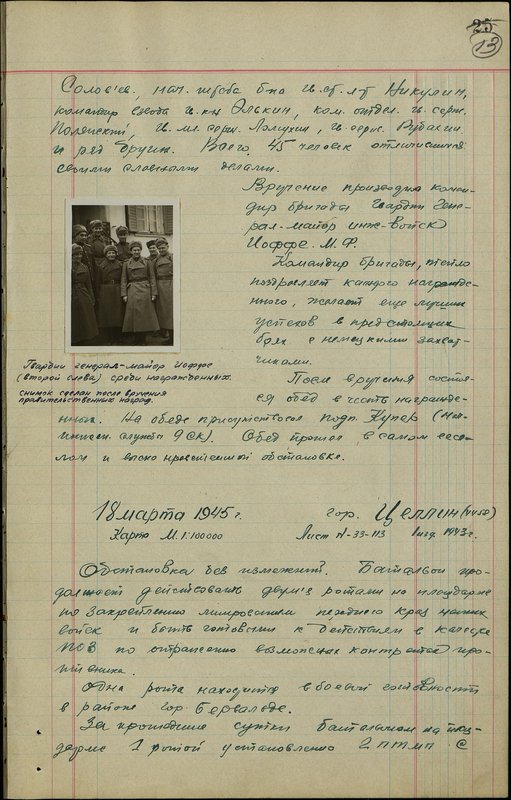 25
13
Соловьев, нач. штаба б-на гв. ст. л-т Никулин,
командир взвода гв. л-т Элькин, ком. отдел. гв. серж.
гв. мл. серж. гв. серж.
и ряд других. Всего 45 человек отличившихся
своими славными делами.
Вручение производил коман-
дир бригады Гвардии Гене-
рал-майор инж-войск
Иоффе. М. Ф.
Командир бригады, тепло
поздравляет каждого награжде-
нного, желает еще лучших
успехов в предстоящих
боях с немецкими захват-
чиками.
Гвардии генерал-майор Иоффе
(второй слева) среди награжденных.
Снимок сделан после вручения
правительственных наград.
После вручения состоял-
ся обед в честь награжде-
нных. На обеде присутствовал подп. Купер (нач.
службы 9 СК). Обед прошел в самой весе-
лой и обстановке.
18 марта 1945 г. гор. Целлин
Карта М. 1:100000 Лист N-33-113 изд. 1943 г.
Обстановка без изменений. Батальон про-
должает действовать двумя ротами на плацдарме
по закреплению минированием переднего края наших
войск и быть готовыми к действиям в качестве
ПОЗ по отражению возможных контратак про-
тивника.
Одна рота находится в боевой готовности
в районе гор. Бервальде.
За прошедшие сутки батальоном на плац-
дарме 1 ротой установлено 2 птмп с